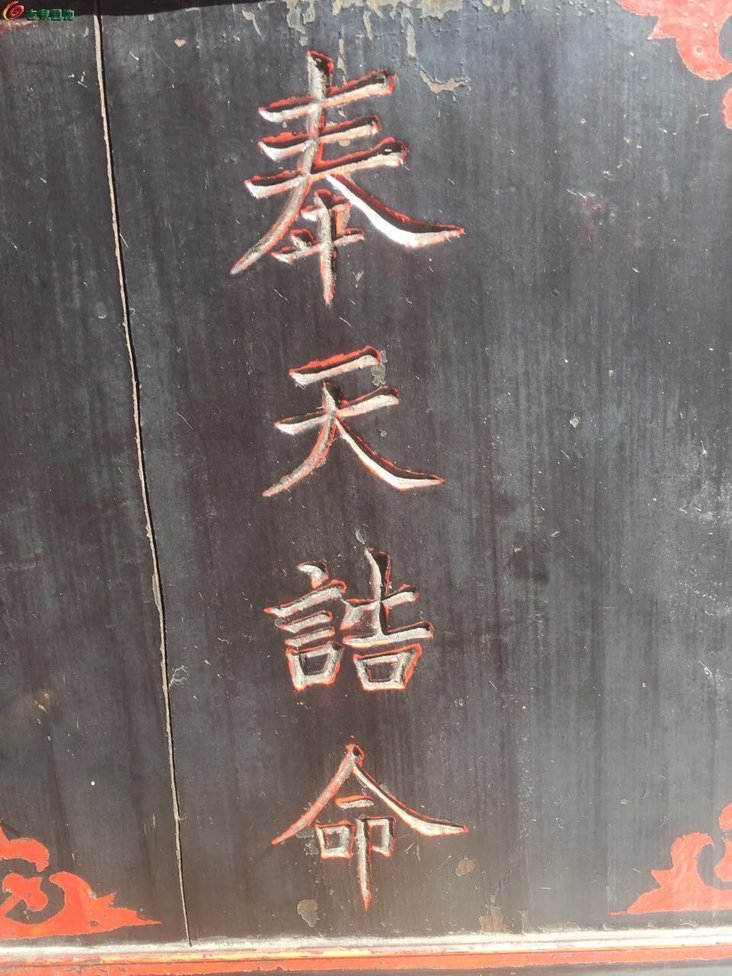 奉天誥命